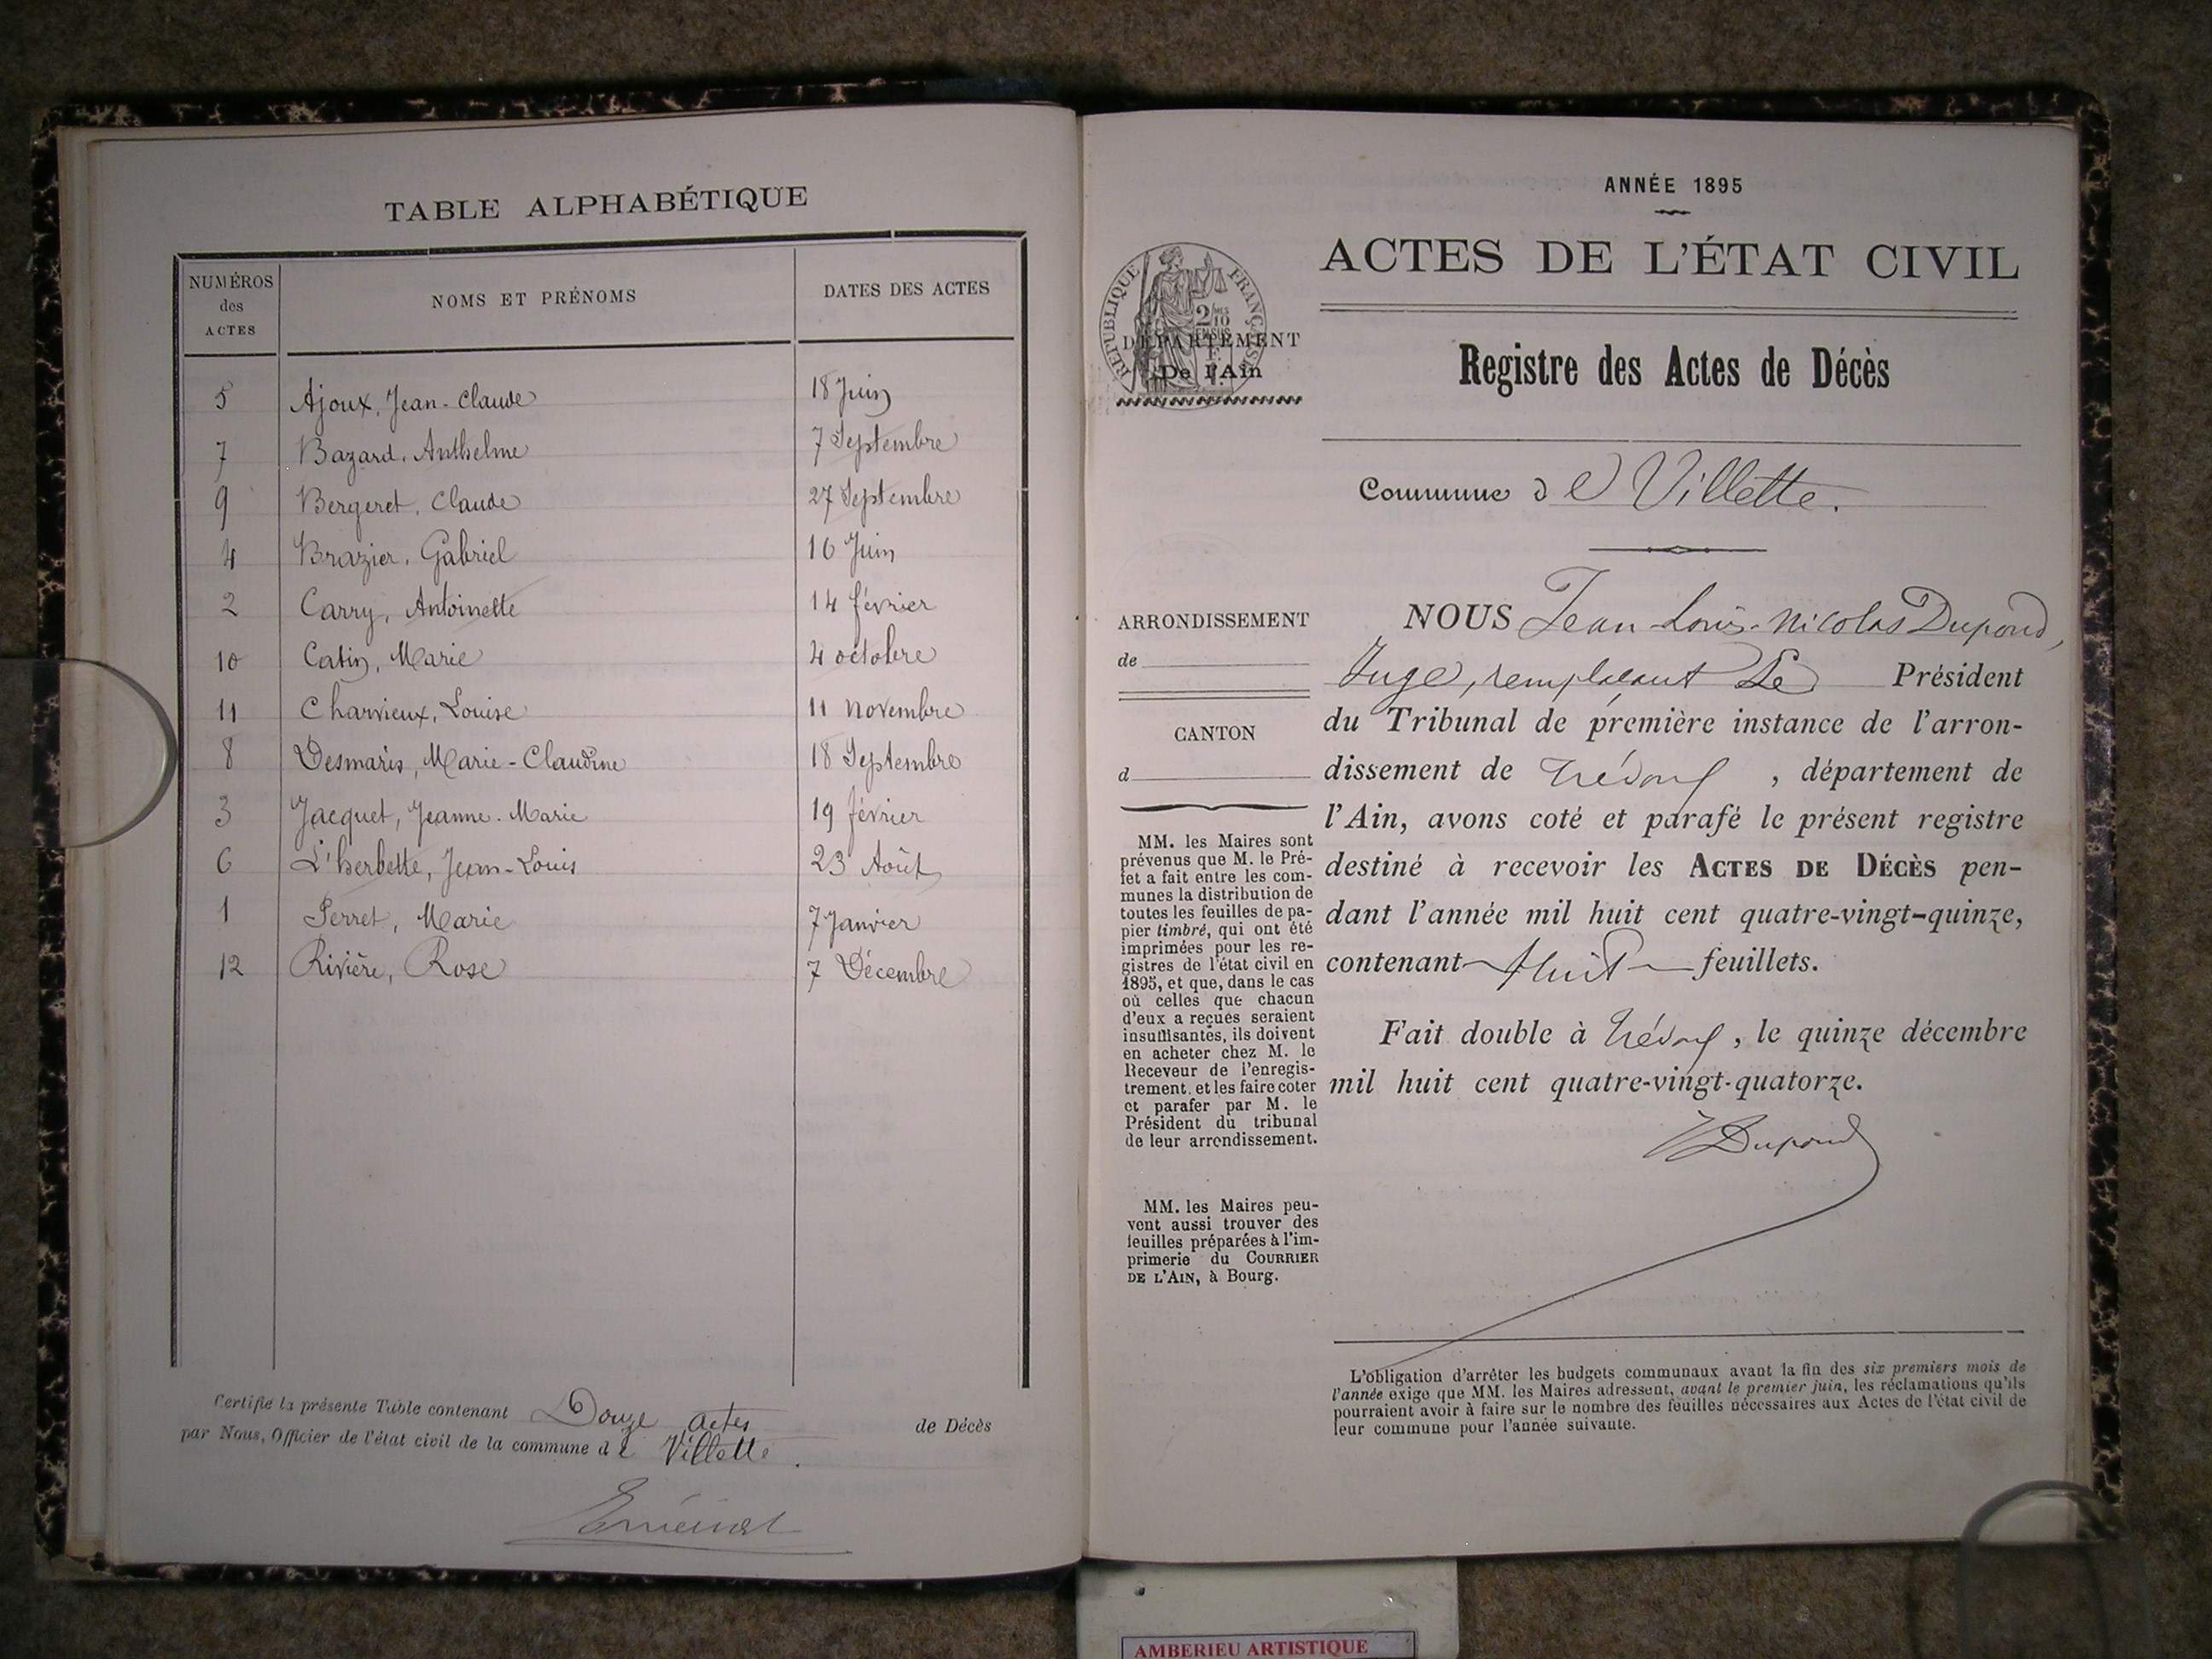 TABLE ALPHABÉTIQUE
NUMÉROS des ACTES NOMS ET PRÉNOMS DATES DES ACTES
5 Ajoux, Jean-Claude 18 Juin
7 Bazard, Anthelme 7 Septembre
9 Bergeret, Claude 27 Septembre
4 Brazier, Gabriel 16 Juin
2 Carry, Antoinette 14 février
10 Catin, Marie 4 octobre
11 Charvieux, Louise 11 novembre
8 Desmaris, Marie-Claudine 18 Septembre
3 Jacquet, Jeanne-Marie 19 février
6 L'herbette, Jean-Louis 23 Août
1 Perret, Marie 7 Janvier
12 Rivière, Rose 7 Décembre
Certifie la présente Table contenant Douze actes de Décès
par Nous, Officier de l'état civil de la commune de Villette.
ANNÉE 1895
ACTES DE L'ÉTAT CIVIL
RÉPUBLIQUE FRANÇAISE
DÉPARTEMENT
De l'Ain
Registre des Actes de Décès
Commune de Villette.
ARRONDISSEMENT
de
CANTON
d
MM. les Maires sont
prévenus que M. le Pré-
fet a fait entre les com-
munes la distribution de
toutes les feuilles de pa-
pier timbré, qui ont été
imprimées pour les re-
gistres de l'état civil en
1895, et que, dans le cas
où celles que chacun
d'eux a reçues seraient
insuffisantes, ils doivent
en acheter chez M. le
Receveur de l'enregis-
trement, et les faire coter
et parafer par M. le
Président du tribunal
de leur arrondissement.
MM. les Maires peu-
vent aussi trouver des
feuilles préparées à l'im-
primerie du COURRIER
DE L'AIN, à Bourg.
NOUS Jean-Louis-Nicolas Dupond,
Juge, remplaçant Le Président
du Tribunal de première instance de l'arron-
dissement de Trévoux, département de
l'Ain, avons coté et parafé le présent registre
destiné à recevoir les ACTES DE DÉCÈS pen-
dant l'année mil huit cent quatre-vingt-quinze,
contenant huit feuillets.
Fait double à Trévoux, le quinze décembre
mil huit cent quatre-vingt-quatorze.
Dupond
L'obligation d'arrêter les budgets communaux avant la fin des six premiers mois de
l'année exige que MM. les Maires adressent, avant le premier juin, les réclamations qu'ils
pourraient avoir à faire sur le nombre des feuilles nécessaires aux Actes de l'état civil de
leur commune pour l'année suivante.
AMBERIEU ARTISTIQUE